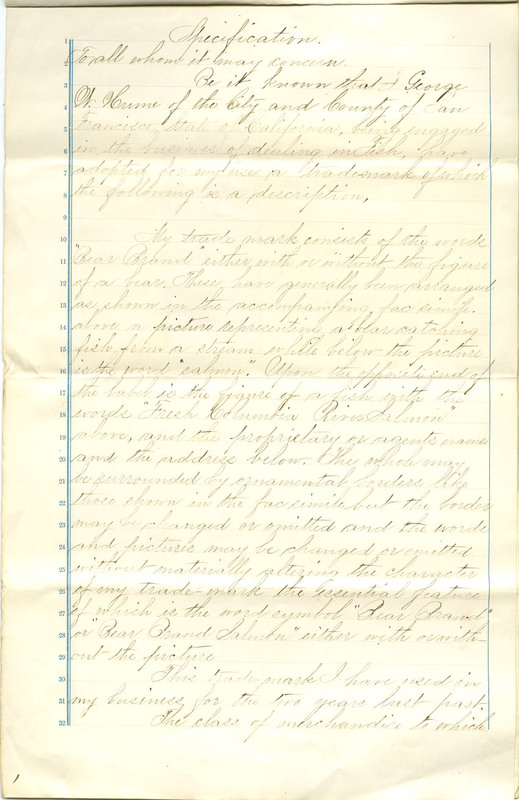 Specification.
1
2 To all whom it may concern.
3 Be it known that I George
4 W. Hume of the City and County of San
5 Francisco, State of California, being engaged
6 in the business of dealing in Fish, have
7 adopted for my use a Trademark of which
8 the following is a description,
9
10 My trade mark consists of the words
11 "Bear Brand" either with or without the figure
12 of a bear. These have generally been arranged
13 as shown in the accompanying fac simile.
14 above a picture representing a bear catching
15 fish from a stream while below the picture
16 is the word "salmon." Upon the opposite end of
17 the label is the figure of a fish with the
18 words "Fresh Columbia River Salmon"
19 above, and the proprietary or agents names
20 and the address below. The whole may
21 be surrounded by ornamental borders like
22 those shown in the fac simile but the border
23 may be changed or omitted and the words
24 and pictures may be changed or omitted
25 without materially altering the character
26 of my trade-mark the essential feature
27 of which is the word symbol "Bear Brand"
28 or "Bear Brand Salmon" either with or with-
29 out the picture
30 This trade-mark I have used in
31 my business for the two years last past.
32 The class of merchandise to which